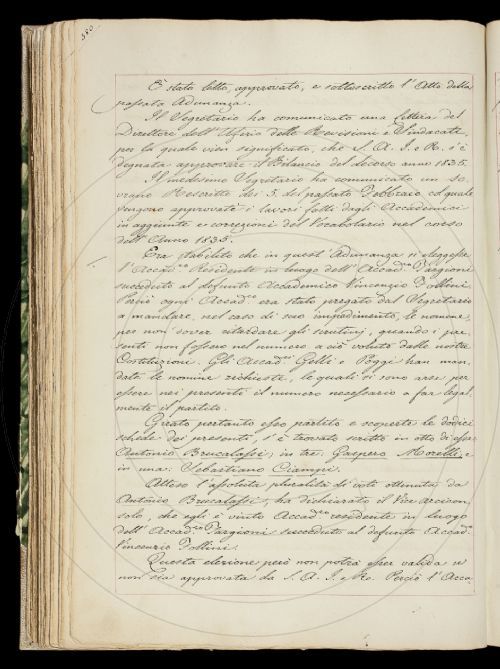 380.
È stato letto, approvato, e sottoscritto l'Atto della
passata Adunanza.
Il Segretario ha comunicato una lettera del
Direttore dell'Ufizio delle Revisioni e Sindacati,
per la quale vien significato, che S. A. I. e R. s'è
degnata approvare il Bilancio del decorso anno 1835.
Il medesimo Segretario ha comunicato un So-
vrano Rescritto di 5. del passato Febbraio col quale
vengono approvati i lavori fatti dagli Accademici
in aggiunte e correzioni del Vocabolario nel corso
dell'Anno 1835.
Era stabilito che in quest'Adunanza si eleggesse
l'Accad.co Residente in luogo dell'Accad.co Targioni
succeduto al defunto Accademico Vincenzio Follini.
Perciò ogni Accad.co era stato pregato dal Segretario
a mandare, nel caso di suo impedimento, le nomine,
per non dover ritardare gli scrutinj, quando i pre-
senti non fossero nel numero a ciò voluto dalle nostre
Costituzioni. Gli Accad.ci Gelli e Poggi han man-
date le nomine richieste, le quali si sono arse per
essere nei presenti il numero necessario a far legal-
mente il partito.
Girato pertanto esso partito e scoperte le dodici
schede dei presenti, s'è trovato scritto in otto di esse
Antonio Brucalassi, in tre: Gaspero Morelli, e
in una: Sebastiano Ciampi.
Atteso l'assoluta pluralità di voti ottenuta da
Antonio Brucalassi, ha dichiarato il Vice arcicon-
solo, che egli è vinto Accad.co residente in luogo
dell'Accad.co Targioni succeduto al defunto Accad.co
Vincenzio Follini.
Questa elezione però non potrà esser valida se
non sia approvata da S. A. I. e R. Perciò l'Acca-